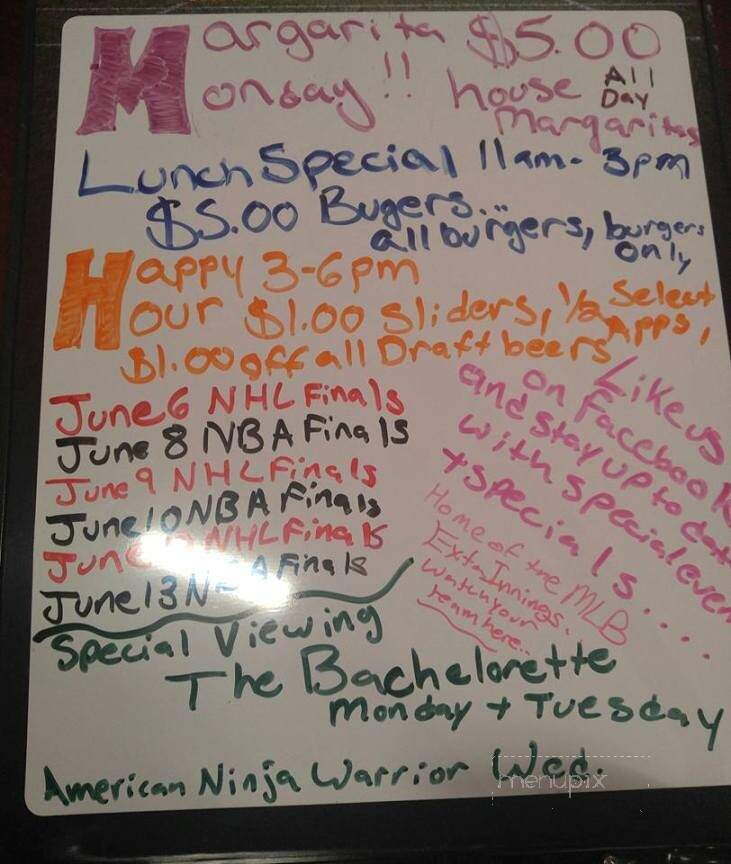 Margarita $5.00
Monday!! house All Day
Margaritas
Lunch Special 11am- 3pm
$5.00 Bugers...
all burgers, burgers only
Happy 3-6pm
Hour $1.00 Sliders, 1/2 Select Apps,
$1.00 off all Draft beers
June 6 NHL Finals
June 8 NBA Finals
June 9 NHL Finals
June 10 NBA Finals
June NHL Finals
June 13 Finals
Like us
on Facebook
and stay up to date
with special even
+ specials....
Home of the MLB
Exta Innings.
Watch your
team here..
Special Viewing
The Bachelorette
Monday + Tuesday
American Ninja Warrior Wed.
menupix